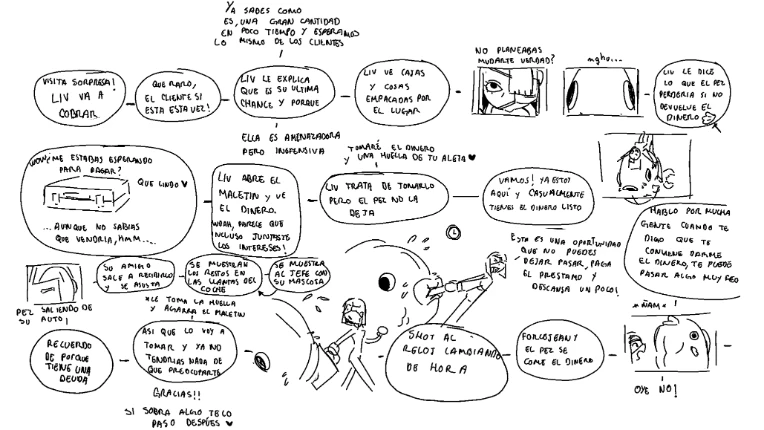 YA SABES COMO
ES, UNA GRAN CANTIDAD
EN POCO TIEMPO Y ESPERAMOS
LO MISMO DE LOS CLIENTES
VISITA SORPRESA!
LIV VA A
COBRAR
QUE RARO,
EL CLIENTE SI
ESTA ESTA VEZ!
LIV LE EXPLICA
QUE ES SU ULTIMA
CHANCE Y PORQUE
ELLA ES AMENAZADORA
PERO INOFENSIVA
LIV VE CAJAS
Y COSAS
EMPACADAS POR
EL LUGAR
NO PLANEABAS
MUDARTE VERDAD?
mghu...
LIV LE DICE
LO QUE EL PEZ
PERDERIA SI NO
DEVUELVE EL
DINERO
WOW! ME ESTABAS ESPERANDO
PARA PAGAR?
QUE LINDO ♥
...AUNQUE NO SABIAS
QUE VENDRIA, HMM....
LIV ABRE EL
MALETIN Y VE
EL DINERO.
WOAH, PARECE QUE
INCLUSO JUNTASTE
LOS INTERESES!
TOMARÉ EL DINERO
Y UNA HUELLA DE TU ALETA ♥
LIV TRATA DE TOMARLO
PERO EL PEZ NO LA
DEJA
VAMOS! YA ESTOY
AQUI Y CASUALMENTE
TIENES EL DINERO LISTO
ESTA ES UNA OPORTUNIDAD
QUE NO PUEDES
DEJAR PASAR, PAGA
EL PRESTAMO Y
DESCANSA UN POCO!
HABLO POR MUCHA
GENTE CUANDO TE
DIGO QUE TE
CONVIENE DARME
EL DINERO, TE PUEDE
PASAR ALGO MUY FEO
PEZ SALIENDO DE
SU AUTO!
SU AMIGO
SALE A RECIBIRLO
Y SE ASUSTA
SE MUESTRAN
LOS RESTOS EN
LAS LLANTAS DEL
COCHE
SE MUESTRA
AL JEFE CON
SU MASCOTA
*LE TOMA LA HUELLA
Y AGARRA EL MALETIN
RECUERDO
DE PORQUE
TIENE UNA
DEUDA
ASI QUE LO VOY A
TOMAR Y YA NO
TENDRIAS NADA DE
QUE PREOCUPARTE
GRACIAS!!
SI SOBRA ALGO TE LO
PASO DESPUÉS ♥
SHOT AL
RELOJ CAMBIANDO
DE HORA
FORCEJEAN Y
EL PEZ SE
COME EL DINERO
*ÑAM*
OYE NO!